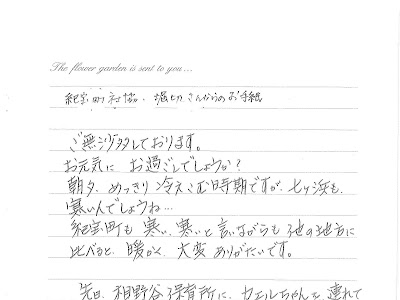 The flower garden is sent to you...
紀宝町社協・堀切さんからのお手紙
ご無沙汰しております。
お元気に お過ごしでしょうか?
朝夕、めっきり 冷えこむ時期ですが、七ヶ浜も、
寒いんでしょうね…
紀宝町も 寒い、寒いと言いながらも 他の地方に
比べると、暖かく、大変 ありがたいです。
先日、相野谷保育所に、カエルちゃんを 連れて